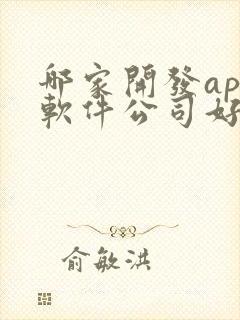 那家開發ap
軟件公司好
俞敏洪